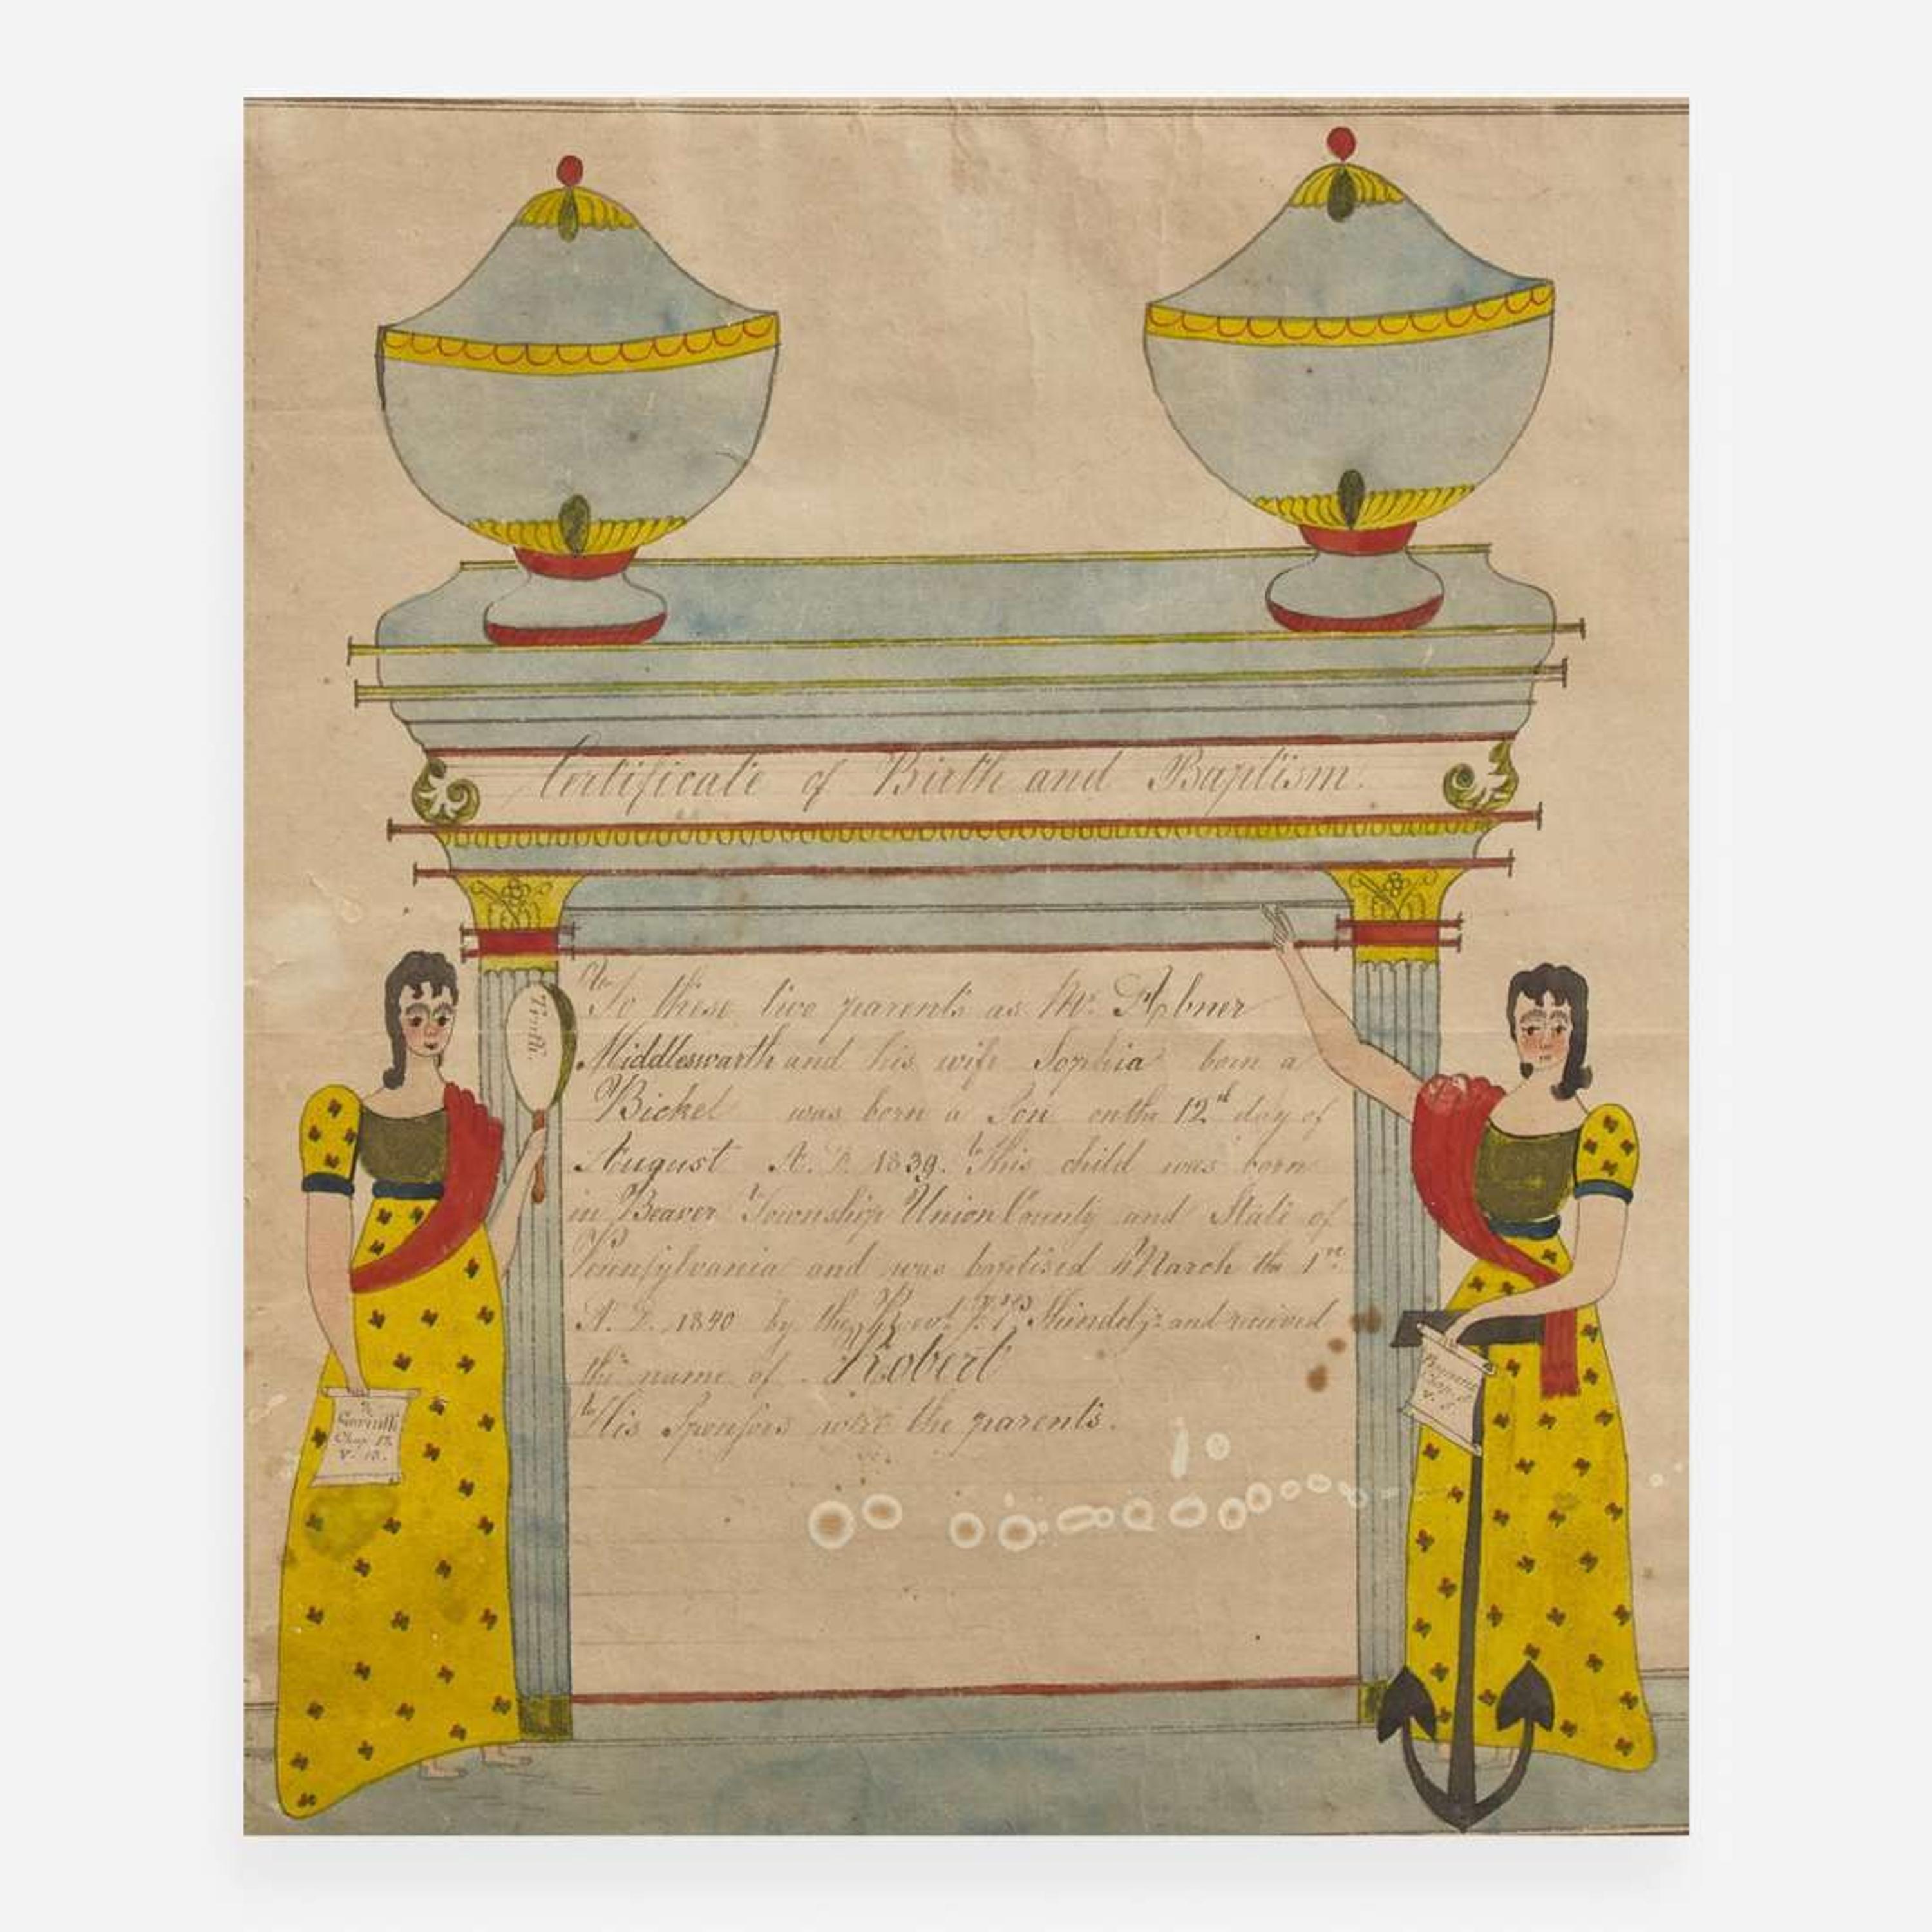 Certificate of Birth and Baptism.
To these two parents as Mr. Abner
Middleswarth and his wife Sophia born a
Bickel was born a Son on the 12th day of
August A. D. 1839. This child was born
in Beaver Township Union County and State of
Pennſylvania and was baptised March the 1st
A. D. 1840 by the Rev. J. P. Shindel jr and received
the name of Robert
His Sponſors were the parents.
Truth.
Corinth
Chap. 13.
V. 13.
Romans
Chap.
V. 5